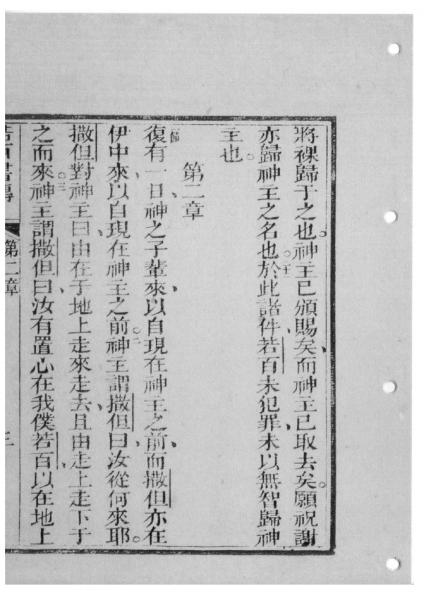 將裸歸于之也神主已頒賜矣而神主已取去矣願祝謝
亦歸神主之名也於此諸件若百未犯罪未以無智歸神
主也
第二章
復有一日神之子輩來以自現在神主之前而撒但亦在
伊中來以自現在神主之前神主謂撒但曰汝從何來耶
撒但對神主曰由在于地上走來走去且由走上走下于
之而來神主謂撒但曰汝有置心在我僕若百以在地上
第二章 三